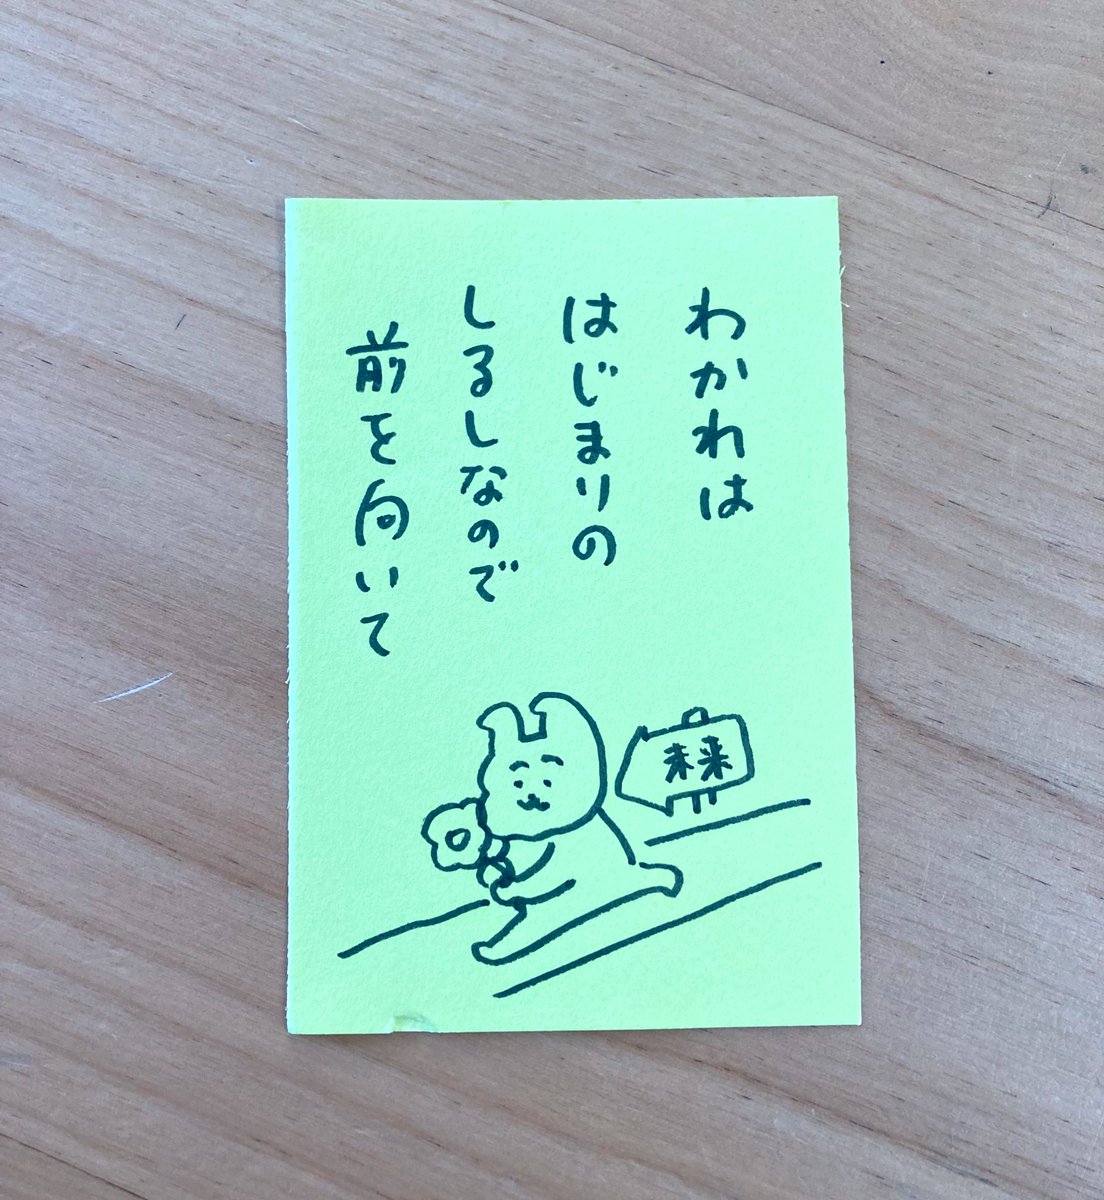 わかれは
はじまりの
しるしなので
前を向いて
未来